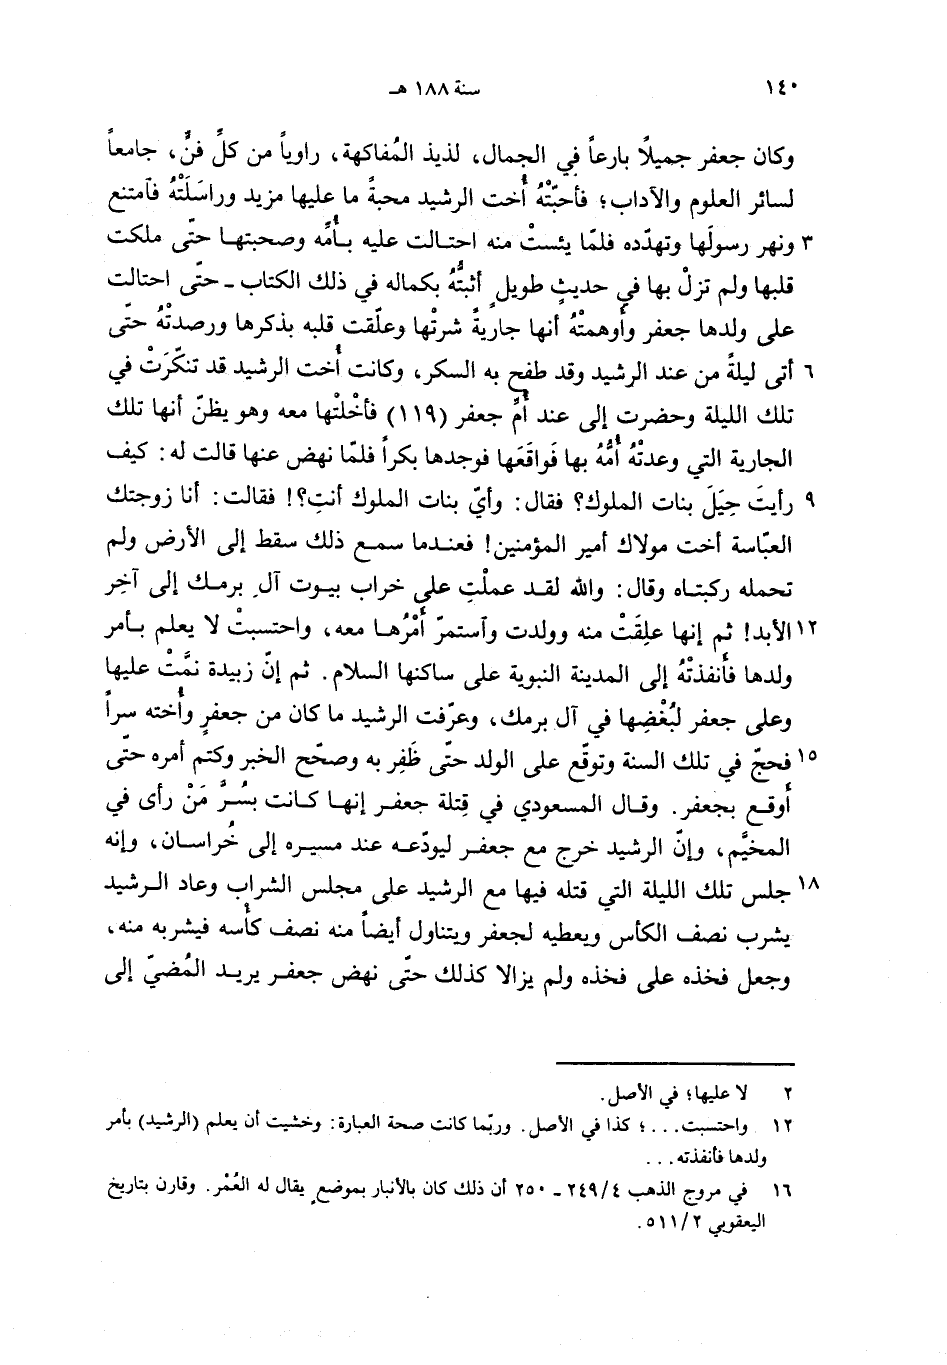 ١٤٠ سنة ١٨٨ هـ
وكان جعفر جميلًا بارعاً في الجمال، لذيذ المُفاكهة، راوياً من كلِّ فنٍّ، جامعاً
لسائر العلوم والآداب؛ فأحبّتْهُ أخت الرشيد محبةً ما عليها مزيد وراسَلَتْهُ فآمتنع
٣ ونهر رسولَها وتهدّده فلمّا يئستْ منه احتالت عليه بأمّه وصحبتها حتّى ملكت
قلبها ولم تزلْ بها في حديثٍ طويلٍ أثبتُّهُ بكماله في ذلك الكتاب ـ حتّى احتالت
على ولدها جعفر وأوهمتْهُ أنها جاريةً شرتْها وعلّقت قلبه بذكرها ورصدتْهُ حتّى
٦ أتى ليلةً من عند الرشيد وقد طفح به السكر، وكانت أخت الرشيد قد تنكّرَتْ في
تلك الليلة وحضرت إلى عند أمّ جعفر (١١٩) فأخْلتْها معه وهو يظنّ أنها تلك
الجارية التي وعدتْهُ أمُّهُ بها فَواقَعَها فوجدها بكراً فلمّا نهض عنها قالت له: كيف
٩ رأيتَ حِيَلَ بنات الملوك؟ فقال: وأيّ بنات الملوك أنتِ؟! فقالت: أنا زوجتك
العبّاسة أخت مولاك أمير المؤمنين! فعندما سمع ذلك سقط إلى الأرض ولم
تحمله ركبتاه وقال: والله لقد عملْتِ على خراب بيوت آلِ برمك إلى آخِر
١٢ الأبد! ثم إنها علِقَتْ منه وولدت وآستمرّ أمْرُها معه، واحتسبتْ لا يعلم بأمر
ولدها فأنفذتْهُ إلى المدينة النبوية على ساكنها السلام. ثم إنّ زبيدة نمَّتْ عليها
وعلى جعفر لبُغْضِها في آل برمك، وعرّفت الرشيد ما كان من جعفرٍ وأخته سراً
١٥ فحجّ في تلك السنة وتوقّع على الولد حتّى ظَفِر به وصحّح الخبر وكتم أمره حتّى
أوقع بجعفر. وقال المسعودي في قِتلة جعفر إنها كانت بسُرَّ مَنْ رأى في
المخيَّم، وإنّ الرشيد خرج مع جعفر ليودّعه عند مسيره إلى خُراسان، وإنه
١٨ جلس تلك الليلة التي قتله فيها مع الرشيد على مجلس الشراب وعاد الرشيد
يشرب نصف الكأس ويعطيه لجعفر ويتناول أيضاً منه نصف كأسه فيشربه منه،
وجعل فخذه على فخذه ولم يزالا كذلك حتّى نهض جعفر يريد المُضيّ إلى
٢ لا عليها؛ في الأصل.
١٢ واحتسبت...؛ كذا في الأصل. وربّما كانت صحة العبارة: وخشيت أن يعلم (الرشيد) بأمر
ولدها فأنفذته...
١٦ في مروج الذهب ٢٤٩/٤ ـ ٢٥٠ أن ذلك كان بالأنبار بموضعٍ يقال له العُمْر. وقارن بتاريخ
اليعقوبي ٥١١/٢.